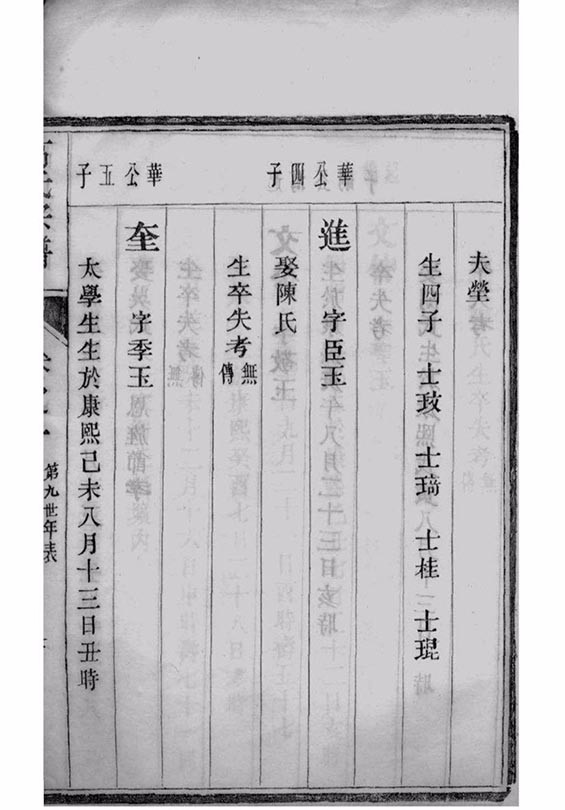 夫塋
生四子 士玫 士琦 士桂 士琨
華公四子
進 字臣玉
娶陳氏
生卒失考 無傳
華公五子
奎 字季玉
太學生生於康熙己未八月十三日丑時
第九世年表